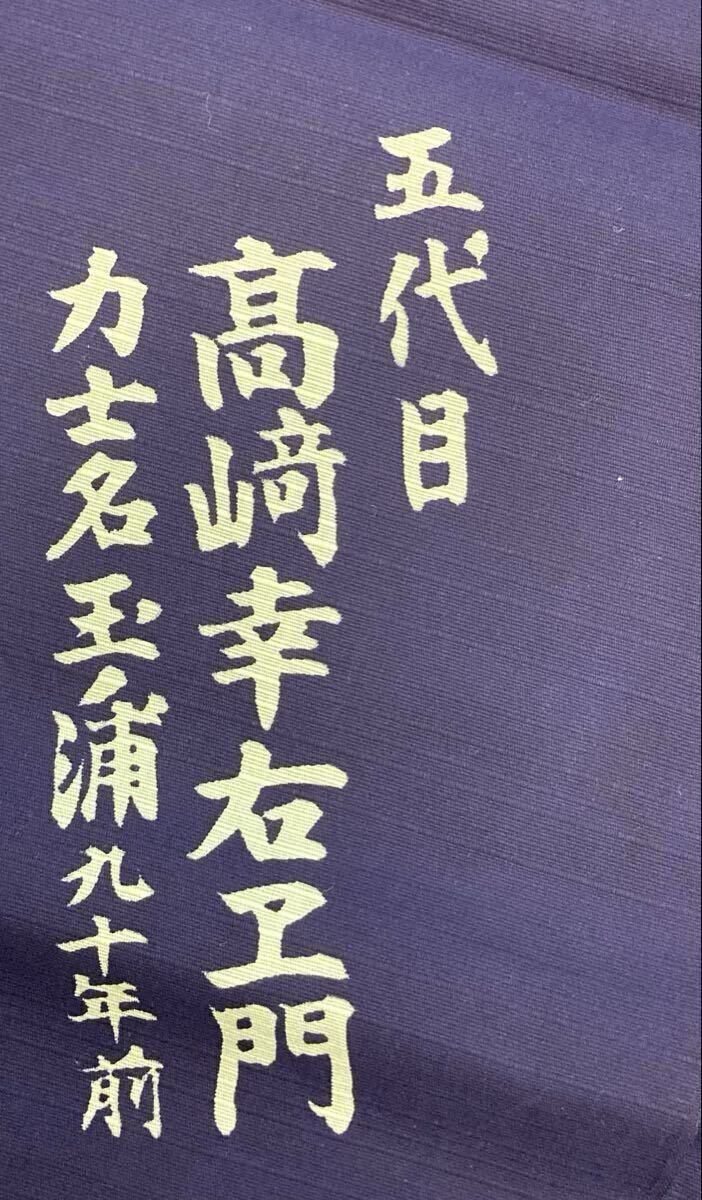 五代目
髙﨑幸右ヱ門
力士名玉ノ浦九十年前